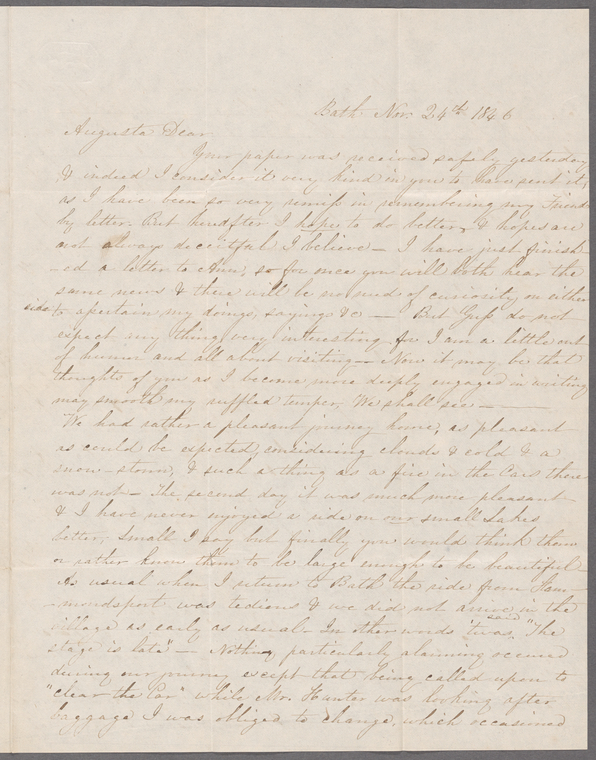 Bath Nov. 24th 1846
Augusta Dear
Your paper was received safely yesterday
& indeed I consider it very kind in you to have sent it,
as I have been so very remiss in remembering my Friends
by letter. But hereafter I hope to do better, & hopes are
not always deceitful I believe — I have just finish
-ed a letter to Ann, so for once you will both hear the
same news & there will be no need of curiosity on either
side to apertain my doings, sayings &c — But Gus do not
expect any thing very interesting for I am a little out
of humor and all about visiting — Now it may be that
thoughts of you as I become more deeply engaged in writing
may smooth my ruffled temper. We shall see —
We had rather a pleasant journey home, as pleasant
as could be expected, considering clouds & cold & a
snow-storm, & such a thing as a fire in the Cars there
was not — The second day it was much more pleasant
& I have never enjoyed a ride on our small Lakes
better, small I say but finally you would think them
or rather know them to be large enough to be beautiful
As usual when I return to Bath the ride from Ham-
-mondsport was tedious & we did not arrive in the
village as early as usual. In other words 'twas said "The
stage is late" — Nothing particularly alarming occured
during our journey except that being called upon to
"clear the Car" while Mr. Hunter was looking after
baggage I was obliged to change, which occasioned